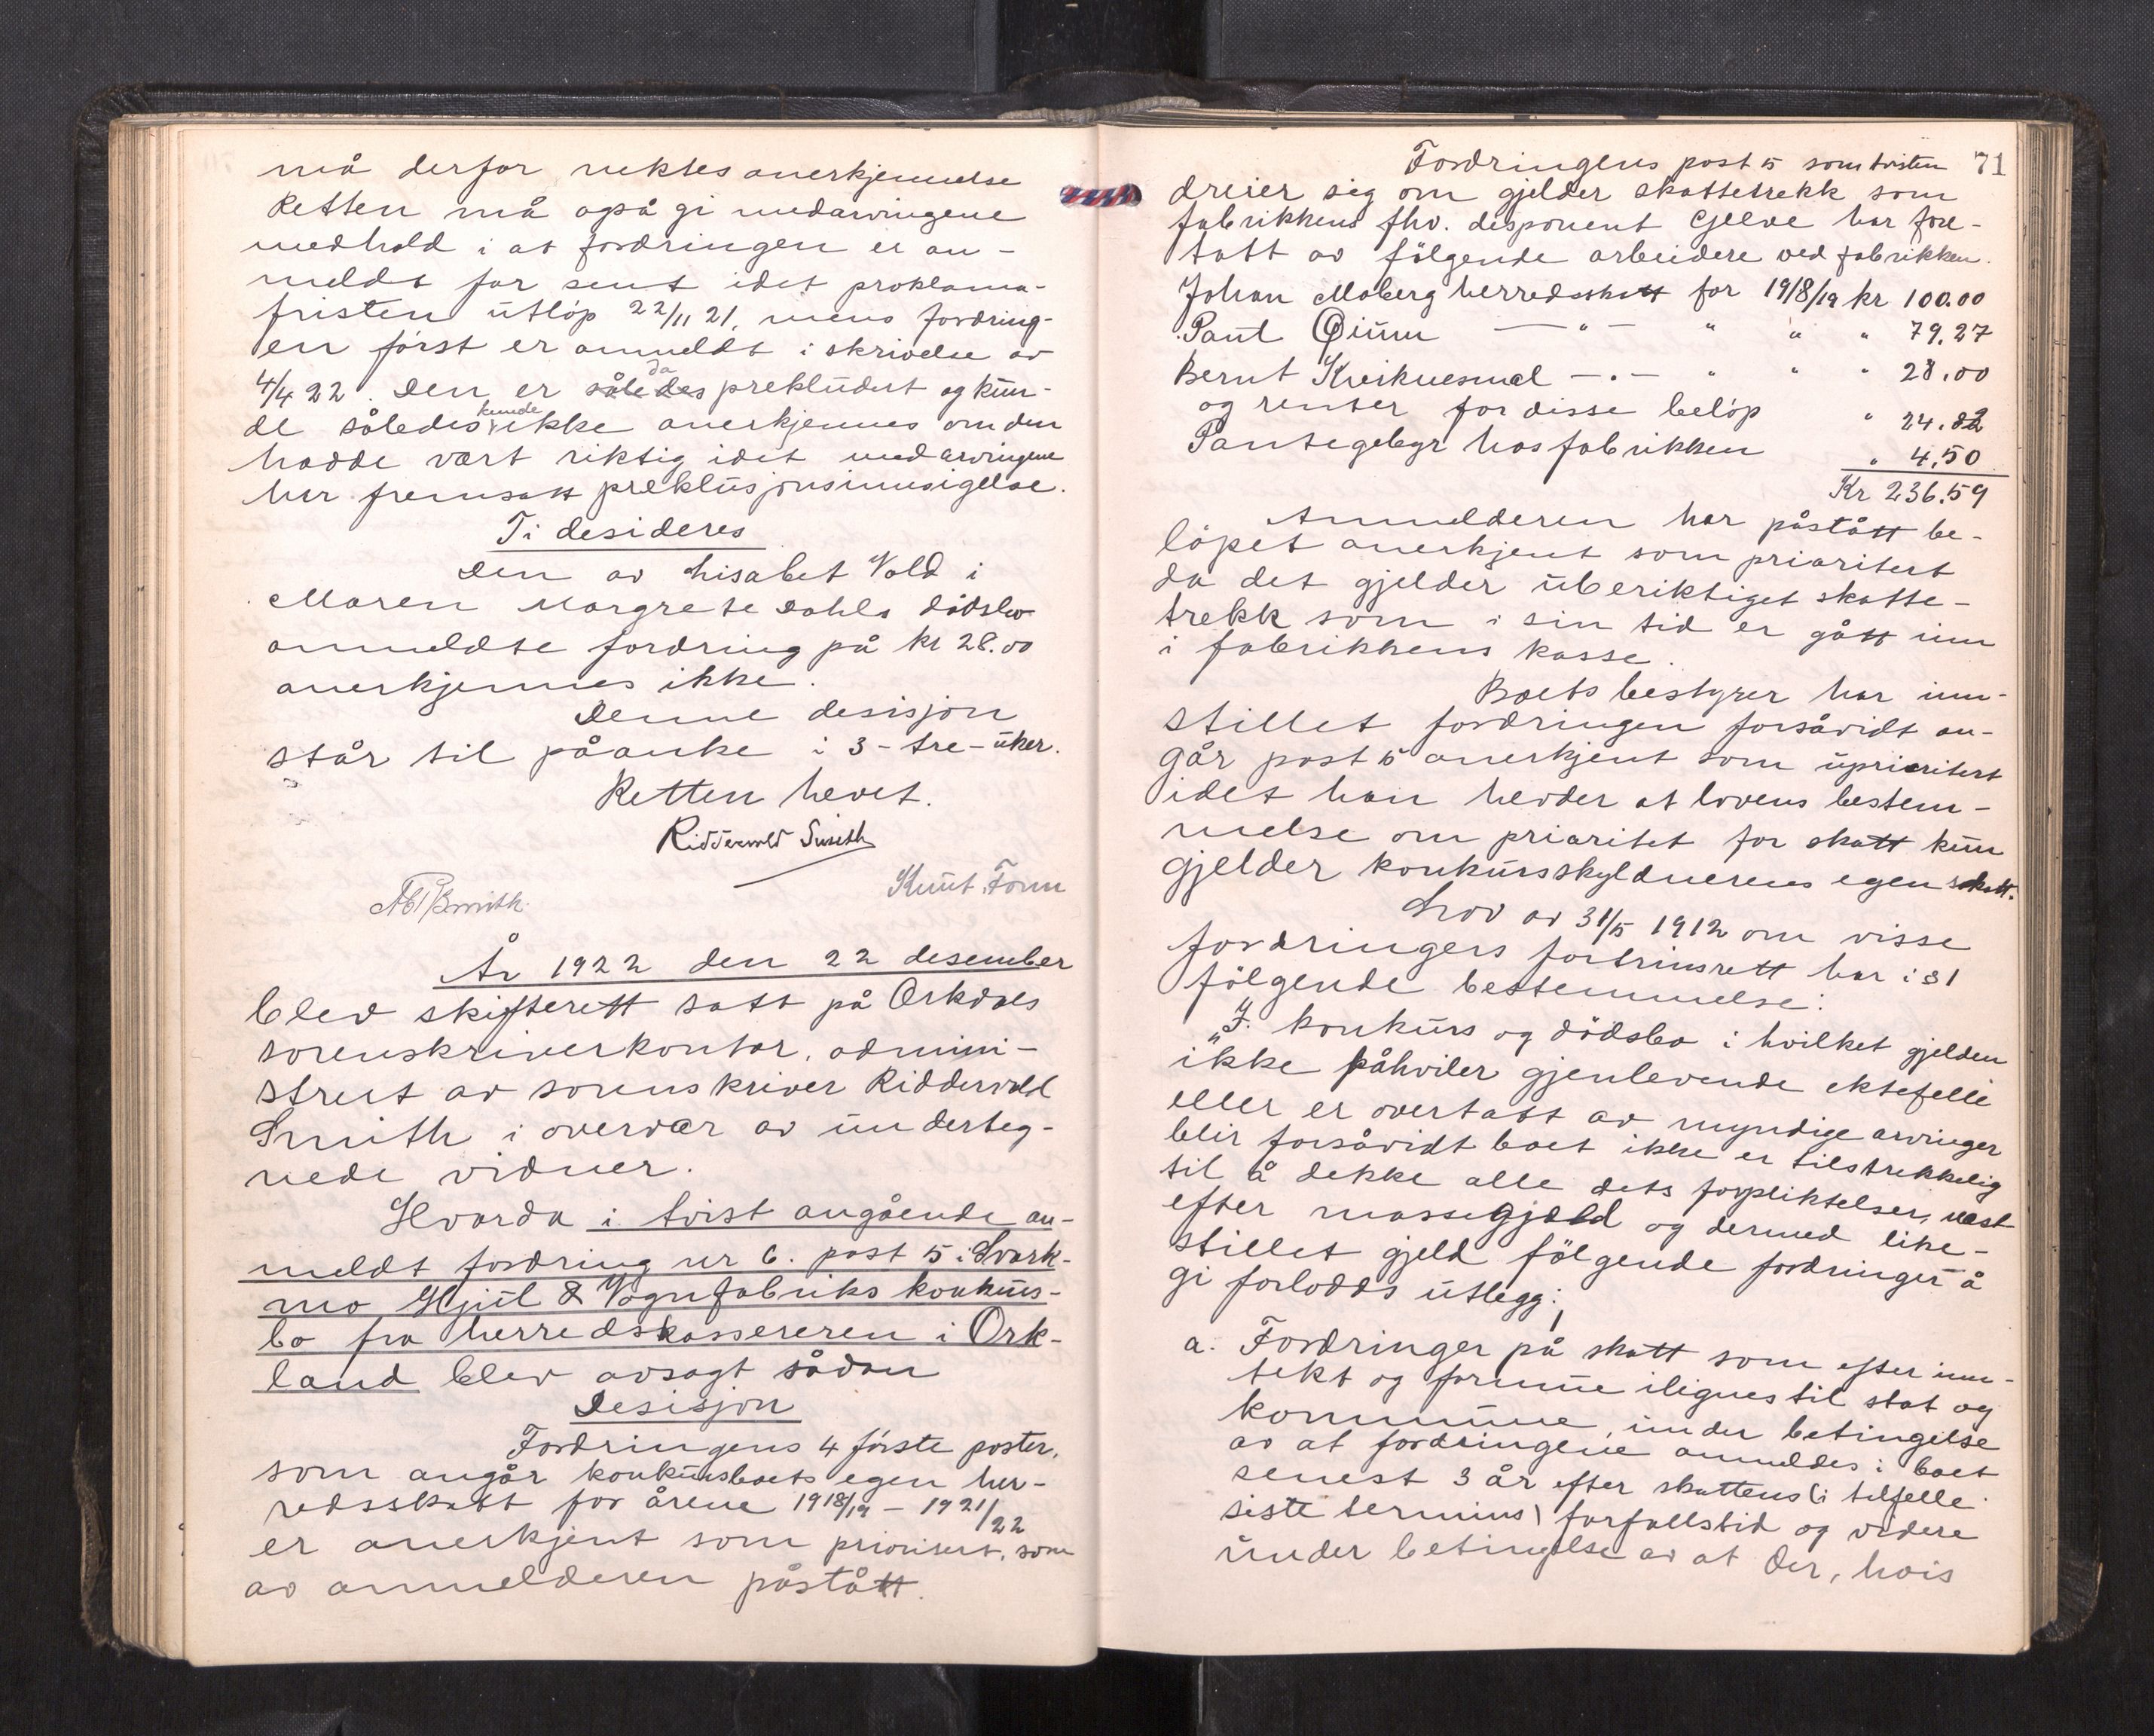 må derfor nektes anerkjennelse
Retten må også gi medarvingene
medhold i at fordringen er an-
meldt for sent idet proklama-
fristen utløp 22/11 21, mens fordring-
en først er anmeldt i skrivelse av
4/4 22. Den er da prekludert og kun-
de således kunde ikke anerkjennes om den
hadde vært riktig idet medarvingene
har fremsatt preklusjonsinnsigelse.
Ti desideres
Den av Lisabet Vold i
Maren Margrete Dahls dødsbo
anmeldte fordring på kr 28.00
anerkjennes ikke.
Denne desisjon
står til påanke i 3 - tre - uker.
Retten hevet.
Ridderwold Smith
Knut Tonn
År 1922 den 22 desember
blev skifterett satt på Orkdals
sorenskriverkontor, admini-
strert av sorenskriver Ridderwold
Smith i overvær av underteg-
nede vidner.
Hvorda i tvist angående an-
meldt fordring nr 6. post 5 i Svork-
mo Hjul & Vognfabriks konkurs-
bo fra herredskassereren i Ork-
land blev avsagt sådan
Desisjon
Fordringens 4 første poster,
som angår konkursboets egen her-
redsskatt for årene 1918/19 - 1921/22
er anerkjent som prioritert, som
av anmelderen påstått.
71
Fordringens post 5 som tvisten
dreier sig om gjelder skattetrekk som
fabrikkens fhv. disponent Gjelve har fore-
tatt av følgende arbeidere ved fabrikken.
Johan Moberg herredsskatt for 1918/19 kr 100.00
Paul Qinn — " — " " " 79.27
Bernt Kreiknesmel — " — " " " 28.00
og renter for disse beløp " 24.82
Pantegebyr hos fabrikken " 4.50
Kr 236.59
Anmelderen har påstått be-
løpet anerkjent som prioritert
da det gjelder uberiktiget skatte-
trekk som i sin tid er gått inn
i fabrikkens kasse.
Boets bestyrer har inn-
stillet fordringen forsåvidt an-
går post 5 anerkjent som uprioritert
idet han hevder at lovens bestem-
melse om prioritet for skatt kun
gjelder konkursskyldnerens egen skatt.
Lov av 31/5 1912 om visse
fordringers fortrinsrett har i § 1
følgende bestemmelse:
"I konkurs og dødsbo i hvilket gjelden
ikke påhviler gjenlevende ektefelle
eller er overtatt av myndige arvinger
blir forsåvidt boet ikke er tilstrekkelig
til å dekke alle dets forpliktelser, næst
efter massegjæld og dermed like-
stillet gjeld følgende fordringer å
gi forlodds utlegg:
a. Fordringer på skatt som efter inn-
tekt og formue ilignes til stat og
kommune, under betingelse
av at fordringene anmeldes i boet
senest 3 år efter skattens (i tilfelle
siste termins) forfallstid og videre
under betingelse av at der, hvis